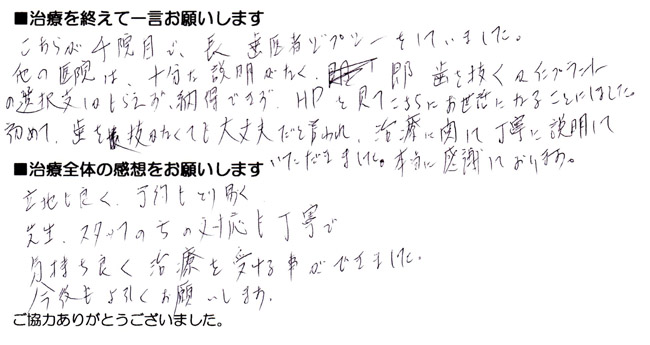 ■治療を終えて一言お願いします
こちらが4院目で、長 歯医者ジプシーをしていました。
他の医院は、十分な説明がなく、即 歯を抜く or インプラント
の選択支しかもらえず、納得できず、HPを見てこちらにお世話になることにしました。
初めて、歯を抜かなくても大丈夫だと言われ、治療に関して丁寧に説明して
いただきました。本当に感謝しております。
■治療全体の感想をお願いします
立地も良く、予約もとり易く
先生、スタッフの方の対応も丁寧で
気持ち良く治療を受ける事ができました。
今後も よろしくお願いします。
ご協力ありがとうございました。